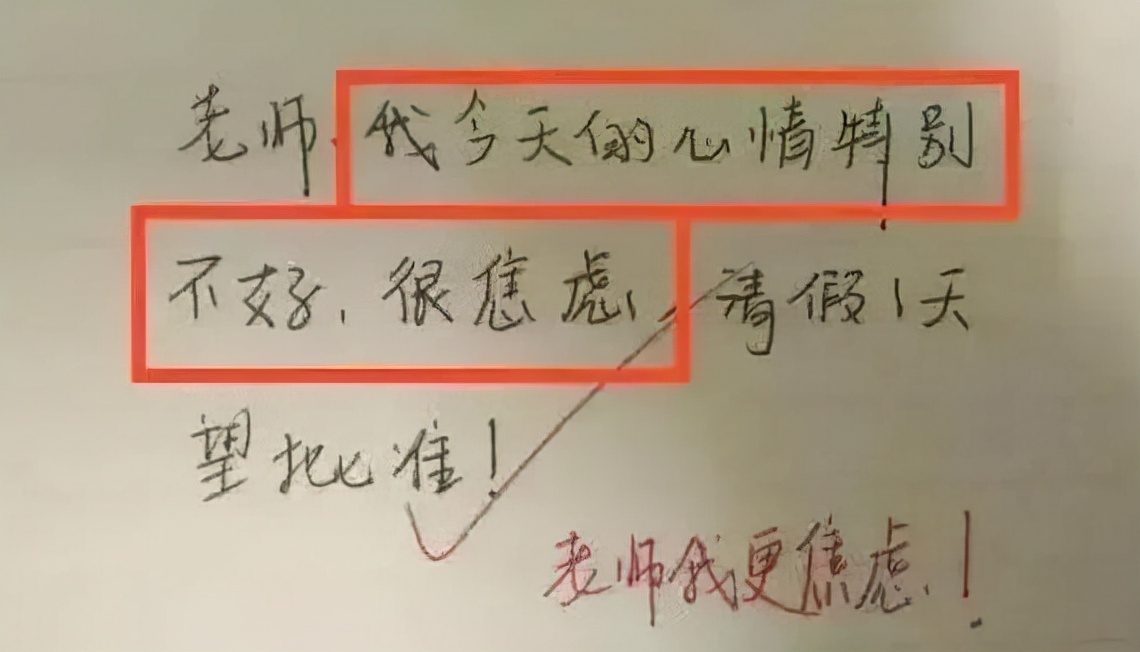 老师，我今天的心情特别
不好，很焦虑，请假1天
望批准！
老师我更焦虑！